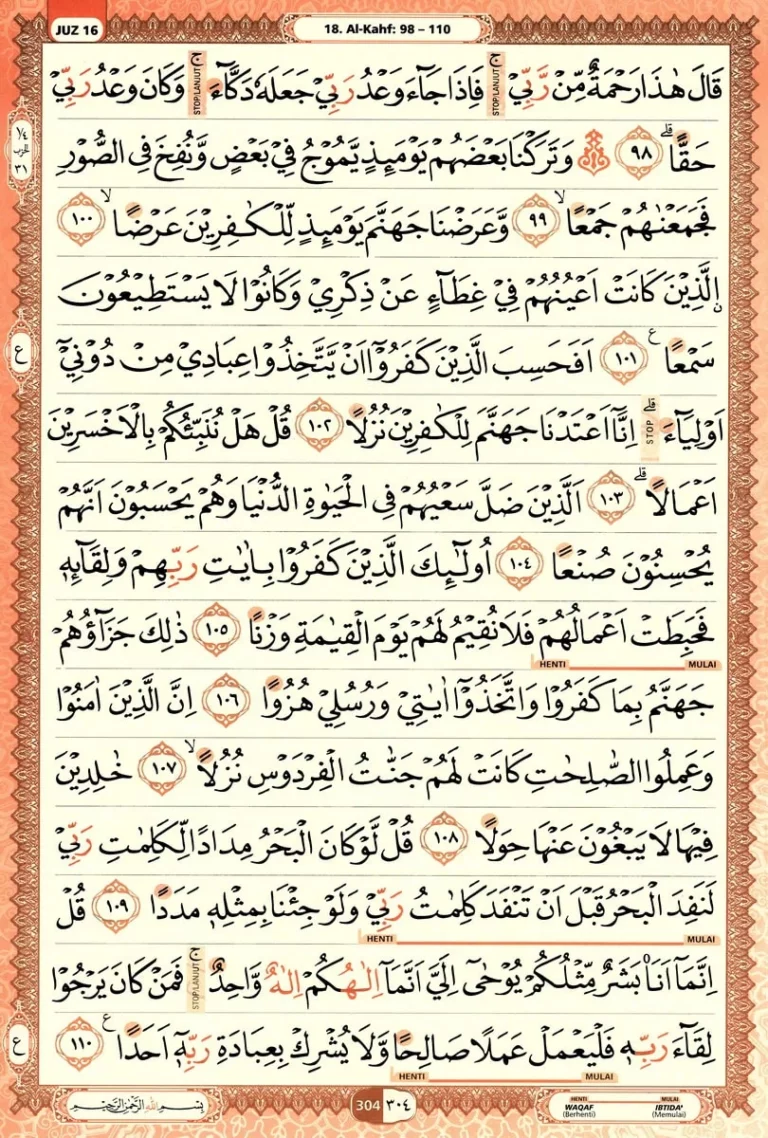 JUZ 16
18. Al-Kahf: 98 – 110
قَالَ هٰذَا رَحْمَةٌ مِّنْ رَّبِّيْۚ فَاِذَا جَاۤءَ وَعْدُ رَبِّيْ جَعَلَهٗ دَكَّاۤءَۚ وَكَانَ وَعْدُ رَبِّيْ
STOP/LANJUT
STOP/LANJUT
حَقًّاۗ ٩٨ وَتَرَكْنَا بَعْضَهُمْ يَوْمَىِٕذٍ يَّمُوْجُ فِيْ بَعْضٍ وَّنُفِخَ فِى الصُّوْرِ
فَجَمَعْنٰهُمْ جَمْعًاۙ ٩٩ وَّعَرَضْنَا جَهَنَّمَ يَوْمَىِٕذٍ لِّلْكٰفِرِيْنَ عَرْضًاۙ ١٠٠
ࣙالَّذِيْنَ كَانَتْ اَعْيُنُهُمْ فِيْ غِطَاۤءٍ عَنْ ذِكْرِيْ وَكَانُوْا لَا يَسْتَطِيْعُوْنَ
سَمْعًا ࣖ ١٠١ اَفَحَسِبَ الَّذِيْنَ كَفَرُوْٓا اَنْ يَّتَّخِذُوْا عِبَادِيْ مِنْ دُوْنِيْٓ
اَوْلِيَاۤءَۗ اِنَّآ اَعْتَدْنَا جَهَنَّمَ لِلْكٰفِرِيْنَ نُزُلًا ١٠٢ قُلْ هَلْ نُنَبِّئُكُمْ بِالْاَخْسَرِيْنَ
STOP
اَعْمَالًاۗ ١٠٣ اَلَّذِيْنَ ضَلَّ سَعْيُهُمْ فِى الْحَيٰوةِ الدُّنْيَا وَهُمْ يَحْسَبُوْنَ اَنَّهُمْ
يُحْسِنُوْنَ صُنْعًا ١٠٤ اُولٰۤىِٕكَ الَّذِيْنَ كَفَرُوْا بِاٰيٰتِ رَبِّهِمْ وَلِقَاۤىِٕهٖ
فَحَبِطَتْ اَعْمَالُهُمْ فَلَا نُقِيْمُ لَهُمْ يَوْمَ الْقِيٰمَةِ وَزْنًا ١٠٥ ذٰلِكَ جَزَاۤؤُهُمْ
HENTI MULAI
جَهَنَّمُ بِمَا كَفَرُوْا وَاتَّخَذُوْٓا اٰيٰتِيْ وَرُسُلِيْ هُزُوًا ١٠٦ اِنَّ الَّذِيْنَ اٰمَنُوْا
وَعَمِلُوا الصّٰلِحٰتِ كَانَتْ لَهُمْ جَنّٰتُ الْفِرْدَوْسِ نُزُلًاۙ ١٠٧ خٰلِدِيْنَ
فِيْهَا لَا يَبْغُوْنَ عَنْهَا حِوَلًا ١٠٨ قُلْ لَّوْ كَانَ الْبَحْرُ مِدَادًا لِّكَلِمٰتِ رَبِّيْ
لَنَفِدَ الْبَحْرُ قَبْلَ اَنْ تَنْفَدَ كَلِمٰتُ رَبِّيْ وَلَوْ جِئْنَا بِمِثْلِهٖ مَدَدًا ١٠٩ قُلْ
HENTI MULAI
اِنَّمَآ اَنَا۠ بَشَرٌ مِّثْلُكُمْ يُوْحٰٓى اِلَيَّ اَنَّمَآ اِلٰهُكُمْ اِلٰهٌ وَّاحِدٌۚ فَمَنْ كَانَ يَرْجُوْا
STOP/LANJUT
لِقَاۤءَ رَبِّهٖ فَلْيَعْمَلْ عَمَلًا صَالِحًا وَّلَا يُشْرِكْ بِعِبَادَةِ رَبِّهٖٓ اَحَدًا ࣖ ١١٠
HENTI MULAI
¼
الحزب
٣١
ع
ع
بِسْمِ اللهِ الرَّحْمٰنِ الرَّحِيْمِ
304 ٣٠٤
HENTI MULAI
WAQAF IBTIDA'
(Berhenti) (Memulai)